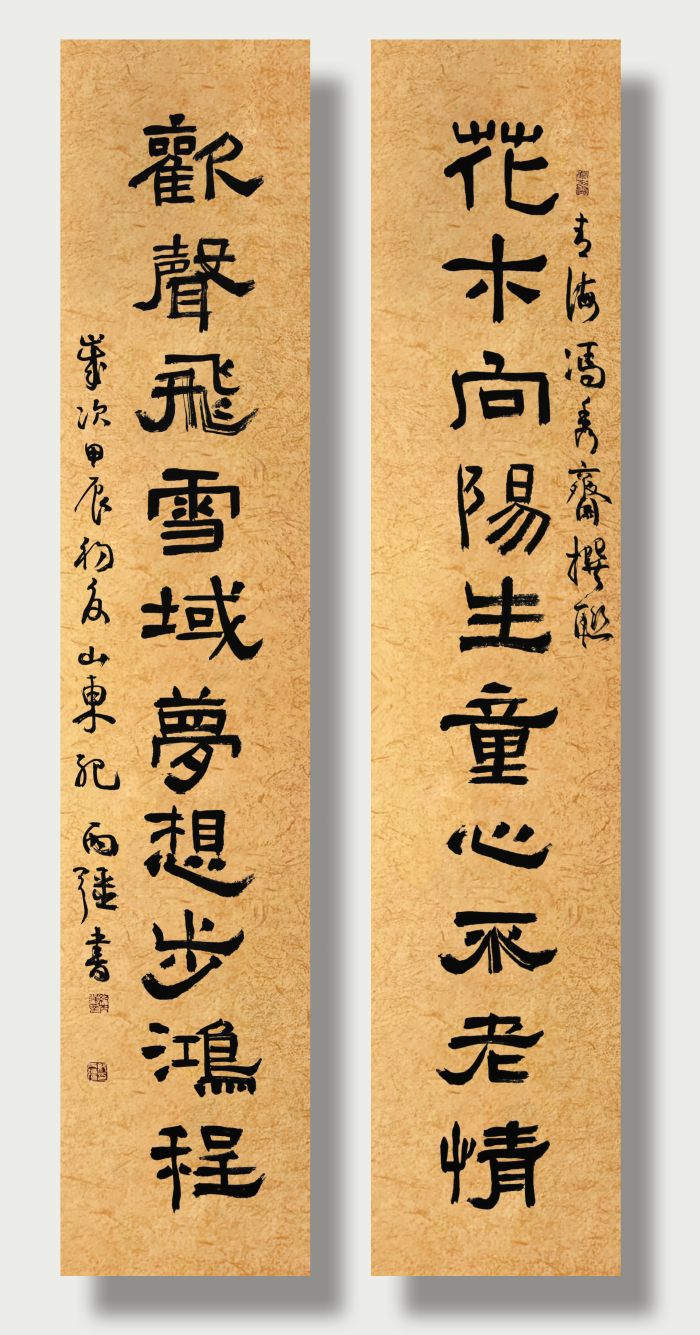 花木向陽生童心不老情
青海馮秀齋撰聯
歡聲飛雪域夢想步鴻程
歲次甲辰初夏山東書